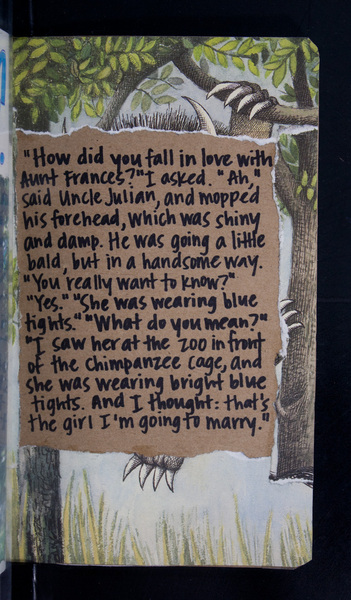 "How did you fall in love with
Aunt Frances?" I asked. "Ah,"
said Uncle Julian, and mopped
his forehead, which was shiny
and damp. He was going a little
bald, but in a handsome way.
"You really want to know?"
"Yes." "She was wearing blue
tights." "What do you mean?"
"I saw her at the zoo in front
of the Chimpanzee cage, and
she was wearing bright blue
tights. And I thought: that's
the girl I'm going to marry."